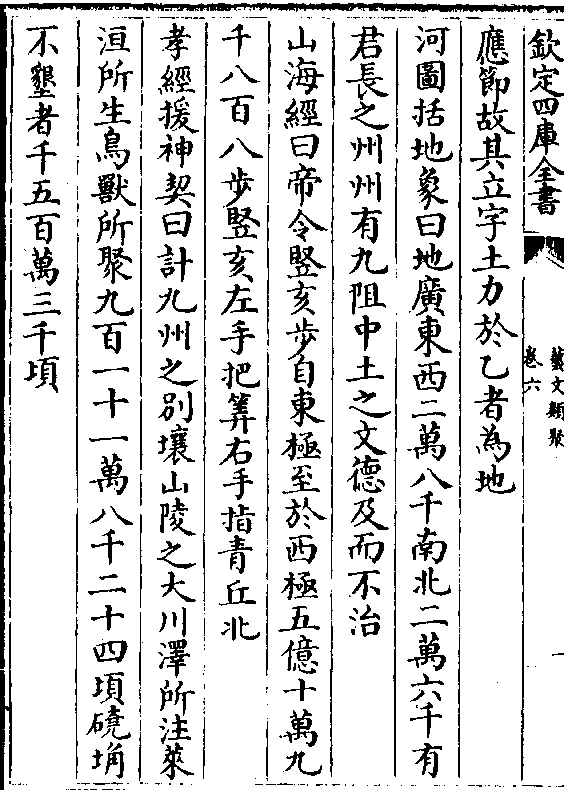 欽定四庫全書
藝文類聚
卷六
一
應節故其立字土力於乙者為地
河圖括地象曰地廣東西二萬八千南北二萬六千有
君長之州州有九阻中土之文德及而不治
山海經曰帝令竪亥步自東極至於西極五億十萬九
千八百八步竪亥左手把筭右手指青丘北
孝經援神契曰計九州之别壤山陵之大川澤所注萊
洹所生鳥獸所聚九百一十一萬八千二十四頃磽埆
不墾者千五百萬三千頃